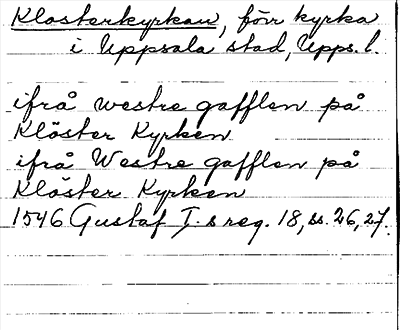 Klosterkyrkan, förr kyrka
i Uppsala stad, Upps. l.
ifrå westre gafflen på
Klöster Kyrken
ifrå Westre gafflen på
Klöster Kyrken
1546 Gustaf I:s reg. 18, ss. 26, 27.